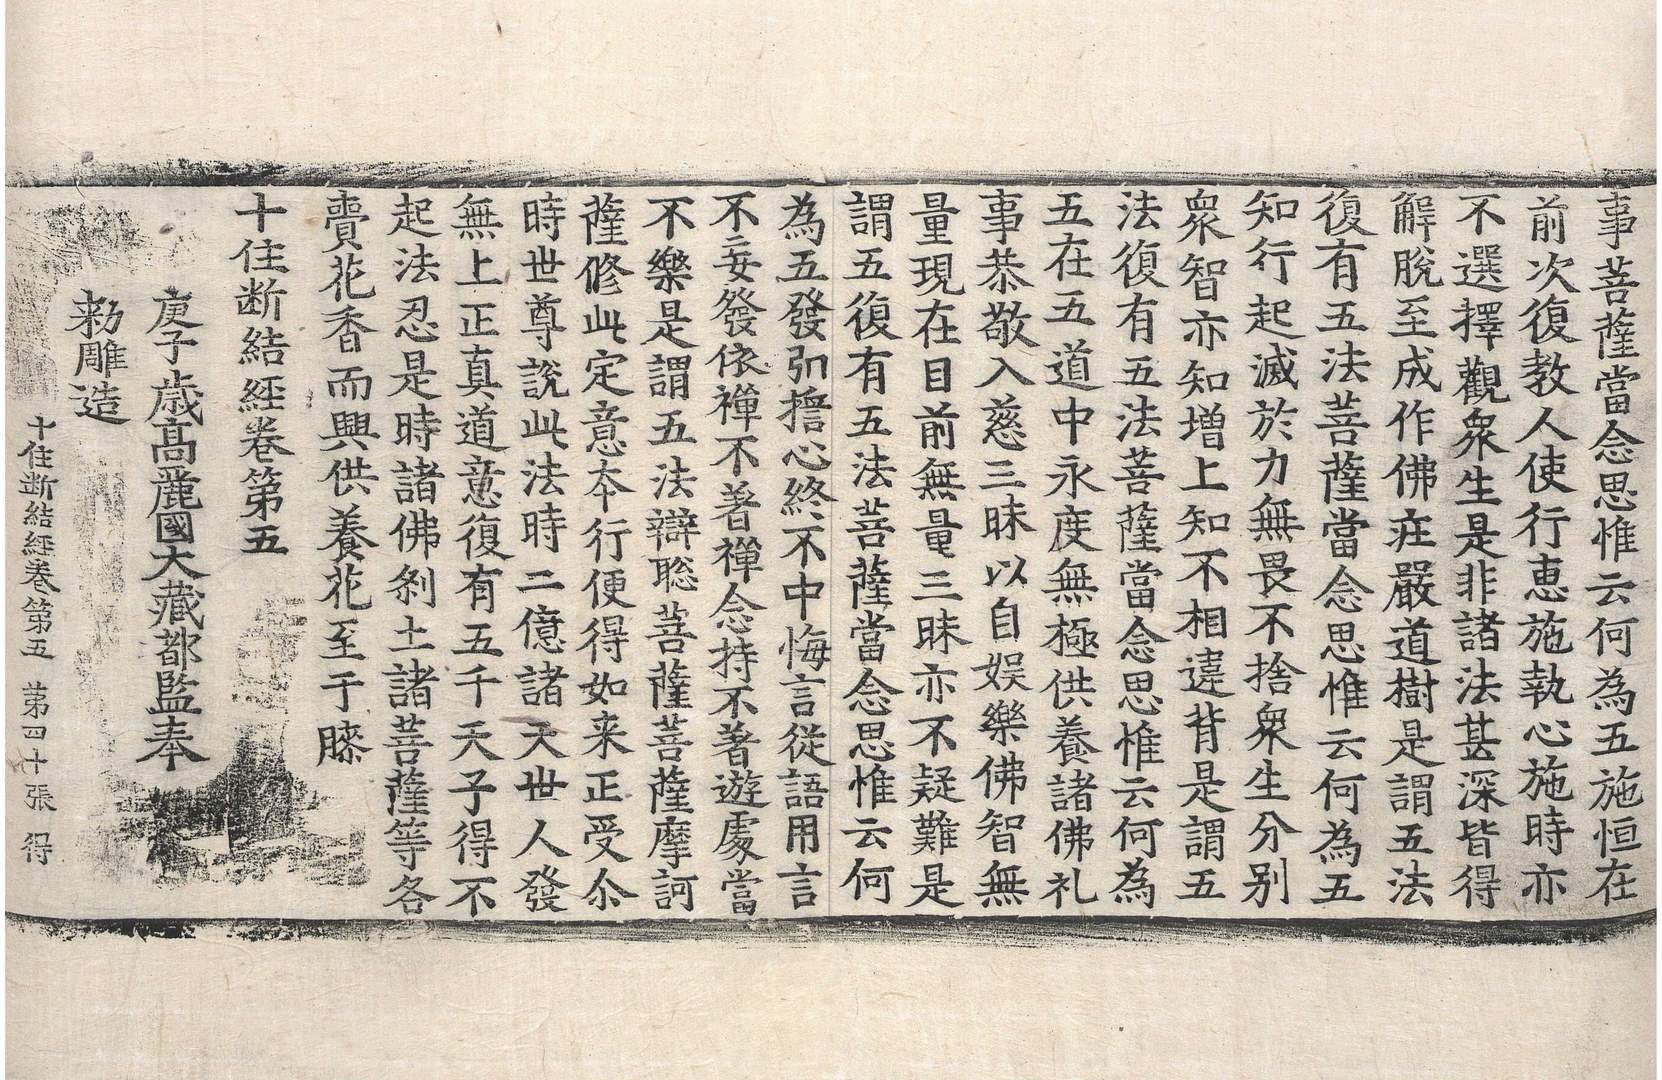 事菩薩當念思惟云何為五施恒在
前次復教人使行恵施執心施時亦
不選擇觀衆生是非諸法甚深皆得
解脫至成作佛莊嚴道樹是謂五法
復有五法菩薩當念思惟云何為五
知行起滅於力無畏不捨衆生分別
衆智亦知增上知不相違背是謂五
法復有五法菩薩當念思惟云何為
五在五道中永度無極供養諸佛礼
事恭敬入慈三昧以自娱樂佛智無
量現在目前無量三昧亦不疑難是
謂五復有五法菩薩當念思惟云何
為五發弘擔心終不中悔言從語用言
不妄發依禪不著禪念持不著遊處當
不樂是謂五法辯聡菩薩菩薩摩訶
薩修此定意本行便得如来正受尒
時世尊說此法時二億諸天世人發
無上正真道意復有五千天子得不
起法忍是時諸佛刹土諸菩薩等各
賷花香而興供養花至于膝
十住断結経卷第五
庚子歳高麗國大藏都監奉
勑雕造
十住断結経卷第五 苐四十張 得